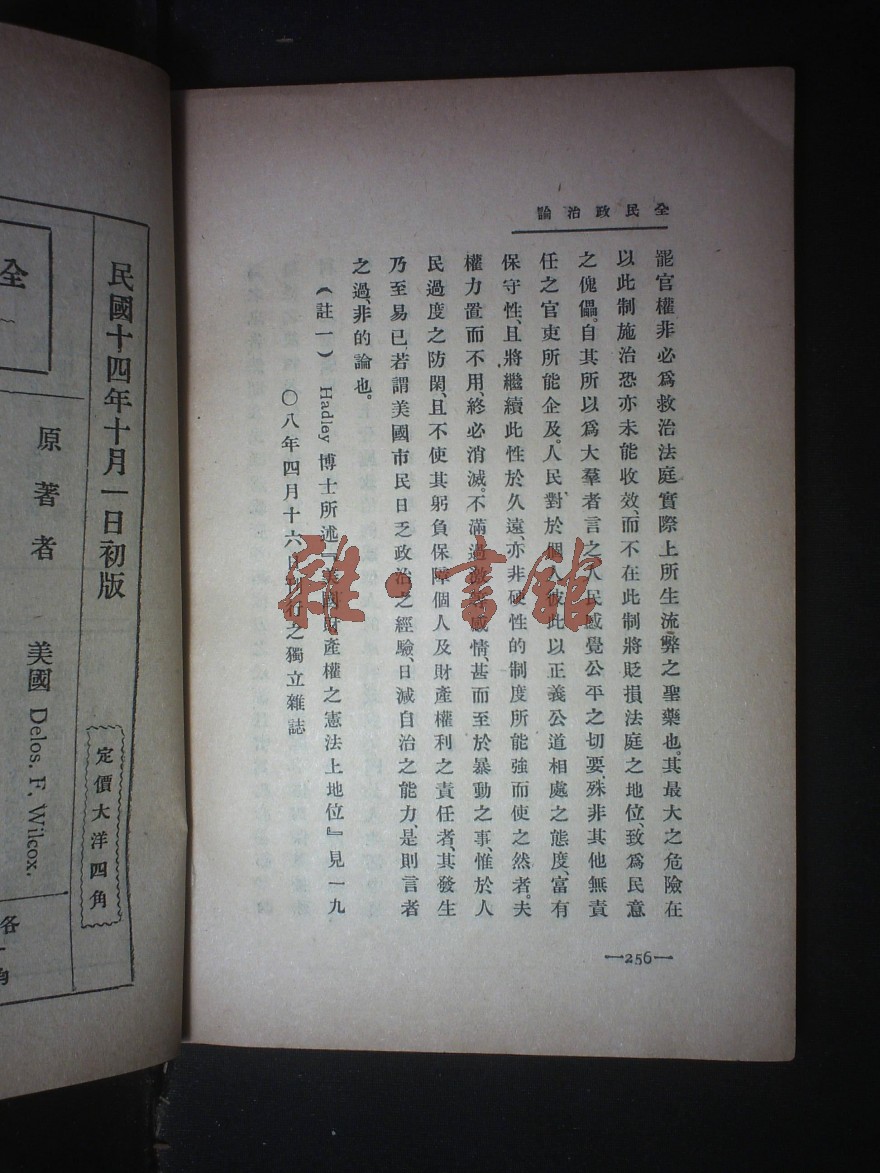 全民政治論
罷官權非必爲救治法庭實際上所生流弊之聖藥也。其最大之危險在
以此制施治恐亦未能收效、而不在此制將貶損法庭之地位、致爲民意
之傀儡。自其所以爲大羣者言之、人民感覺公平之切要、殊非其他無責
任之官吏所能企及。人民對於個人彼此以正義公道相處之態度、富有
保守性、且將繼續此性於久遠、亦非硬性的制度所能強而使之然者。夫
權力置而不用、終必消滅。不滿過激等感情、甚而至於暴動之事、惟於人
民過度之防閑、且不使其躬負保障個人及財產權利之責任者、其發生
乃至易已。若謂美國市民日乏政治之經驗、日減自治之能力、是則言者
之過、非的論也。
(註一) Hadley 博士所述『美國財產權之憲法上地位』見一九
〇八年四月十六日刊行之獨立雜誌
—256—
雜·書館
民國十四年十月一日初版
定價大洋四角
原著者 美國 Delos. F. Wilcox.
全
各
角